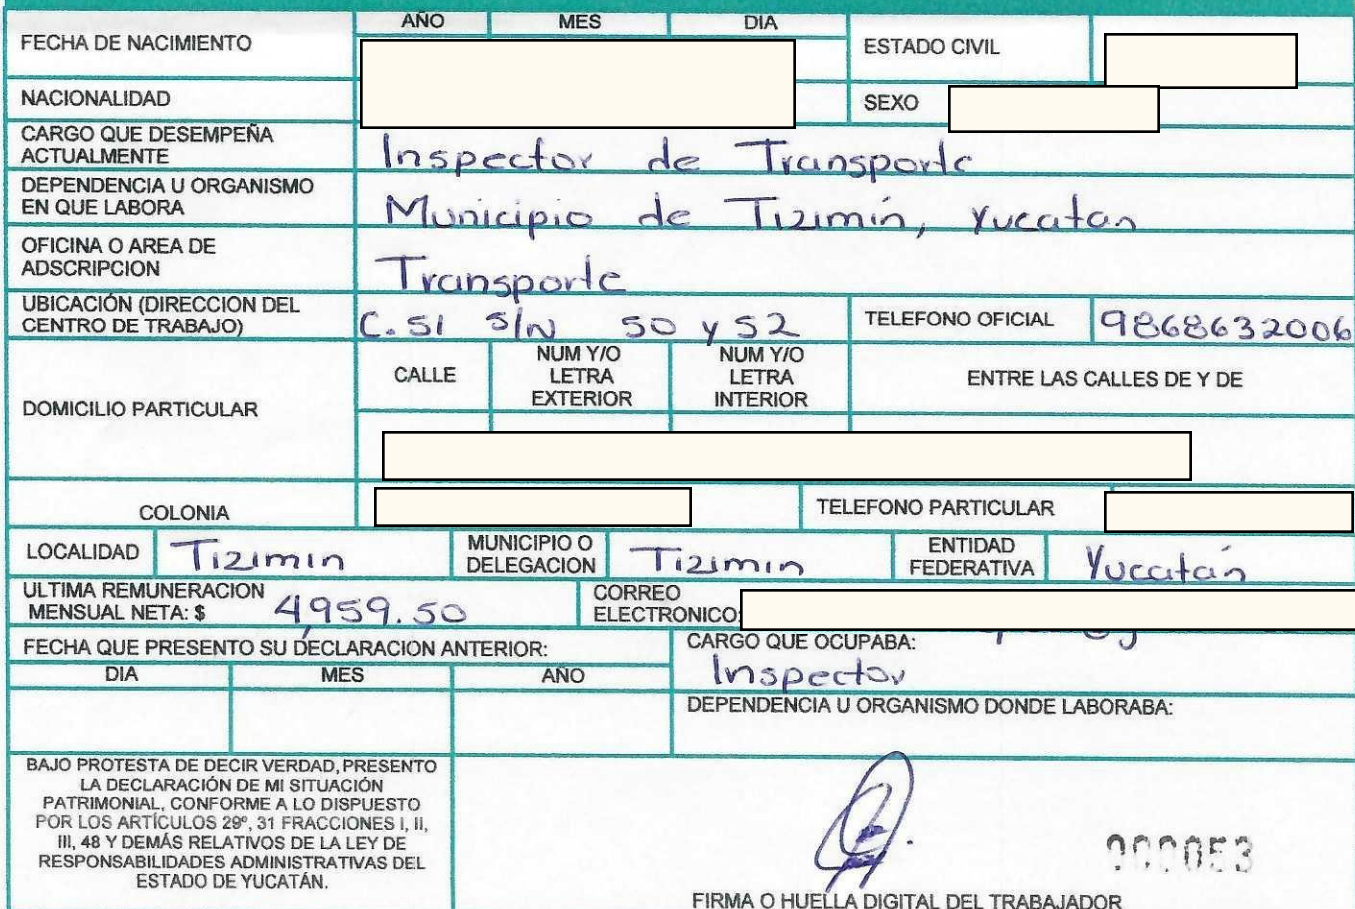 AÑO MES DIA
FECHA DE NACIMIENTO ESTADO CIVIL
NACIONALIDAD SEXO
CARGO QUE DESEMPEÑA
ACTUALMENTE
Inspector de Transporte
DEPENDENCIA U ORGANISMO
EN QUE LABORA
Municipio de Tizimín, Yucatan
OFICINA O AREA DE
ADSCRIPCION
Transporte
UBICACIÓN (DIRECCION DEL
CENTRO DE TRABAJO)
C. 51 S/N 50 y 52
TELEFONO OFICIAL 9868632006
DOMICILIO PARTICULAR
CALLE
NUM Y/O
LETRA
EXTERIOR
NUM Y/O
LETRA
INTERIOR
ENTRE LAS CALLES DE Y DE
COLONIA TELEFONO PARTICULAR
LOCALIDAD Tizimin
MUNICIPIO O
DELEGACION
Tizimin
ENTIDAD
FEDERATIVA
Yucatán
ULTIMA REMUNERACION
MENSUAL NETA: $ 4,959.50
CORREO
ELECTRONICO:
FECHA QUE PRESENTO SU DECLARACION ANTERIOR:
DIA MES AÑO
CARGO QUE OCUPABA:
Inspector
DEPENDENCIA U ORGANISMO DONDE LABORABA:
BAJO PROTESTA DE DECIR VERDAD, PRESENTO
LA DECLARACIÓN DE MI SITUACIÓN
PATRIMONIAL, CONFORME A LO DISPUESTO
POR LOS ARTÍCULOS 29º, 31 FRACCIONES I, II,
III, 48 Y DEMÁS RELATIVOS DE LA LEY DE
RESPONSABILIDADES ADMINISTRATIVAS DEL
ESTADO DE YUCATÁN.
000053
FIRMA O HUELLA DIGITAL DEL TRABAJADOR